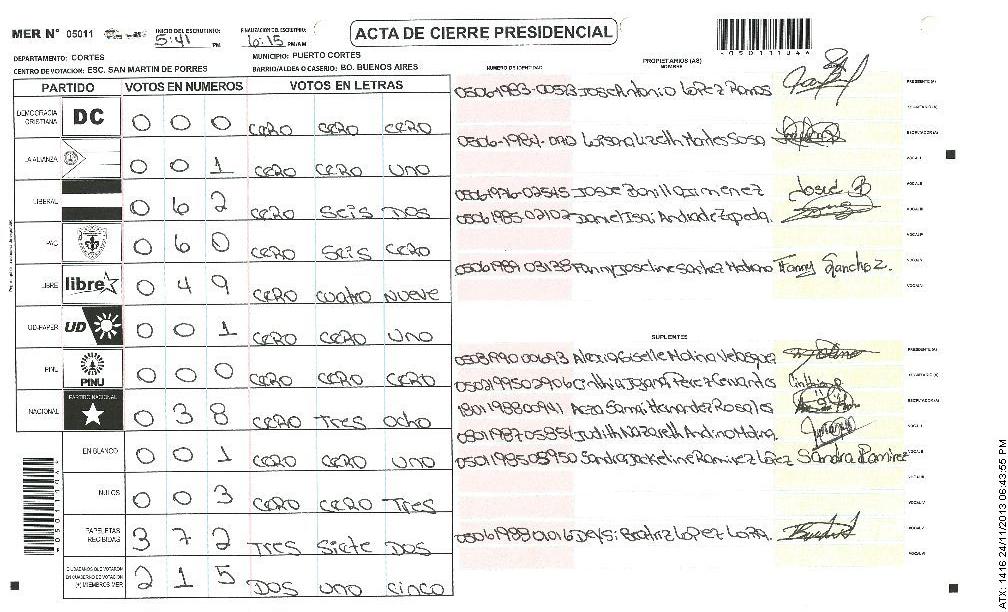 MER N° 05011
INICIO DEL ESCRUTINIO: 5:41 PM
FINALIZACION DEL ESCRUTINIO: 6:15 PM/AM
ACTA DE CIERRE PRESIDENCIAL
DEPARTAMENTO: CORTES
MUNICIPIO: PUERTO CORTES
CENTRO DE VOTACION: ESC. SAN MARTIN DE PORRES
BARRIO/ALDEA O CASERIO: BO. BUENOS AIRES
PARTIDO VOTOS EN NUMEROS VOTOS EN LETRAS
DEMOCRACIA CRISTIANA DC 0 0 0 CERO CERO CERO
LA ALIANZA 0 0 1 CERO CERO UNO
LIBERAL 0 6 2 CERO SEIS DOS
PAC 0 6 0 CERO SEIS CERO
LIBRE libre 0 4 9 CERO CUATRO NUEVE
UD-FAPER UD 0 0 1 CERO CERO UNO
PINU PINU 0 0 0 CERO CERO CERO
NACIONAL PARTIDO NACIONAL 0 3 8 CERO TRES OCHO
EN BLANCO 0 0 1 CERO CERO UNO
NULOS 0 0 3 CERO CERO TRES
PAPELETAS RECIBIDAS 3 7 2 TRES SIETE DOS
CIUDADANOS QUE VOTARON EN CUADERNO DE VOTACION (+) MIEMBROS MER 2 1 5 DOS UNO CINCO
NUMERO DE IDENTIDAD
PROPIETARIOS (AS)
NOMBRE
0506-1983-00523 Jose Antonio Lopez Ramos
PRESIDENTE (A)
SECRETARIO (A)
0506-1984- Sosa
ESCRUTADOR (A)
VOCAL I
0506 1976-02545 Josue Bonilla Jimenez Josue B
VOCAL II
0506 1985-02102 Daniel Isai Andrade Zepeda.
VOCAL III
VOCAL IV
0506 1989 03138 Fanny Joseline Sanchez Fanny Sanchez.
VOCAL V
VOCAL VI
SUPLENTES
Alexia Giselle Molina Velasquez Molina
PRESIDENTE (A)
0502 1995 02906 Cinthia Perez Cinthia P
SECRETARIO (A)
1801 1988 00941 Hernandez Rosales
ESCRUTADOR (A)
0801 1987 05851 Judith Nazareth Andino Molina
VOCAL I
0501 1985 08950 Sandra Jackeline Ramirez Lopez Sandra Ramirez
VOCAL II
VOCAL III
VOCAL IV
0506 1988 01016 Deysi Beatriz Lopez
VOCAL V
VOCAL VI
ATX: 1416 24/11/2013 06:43:55 PM